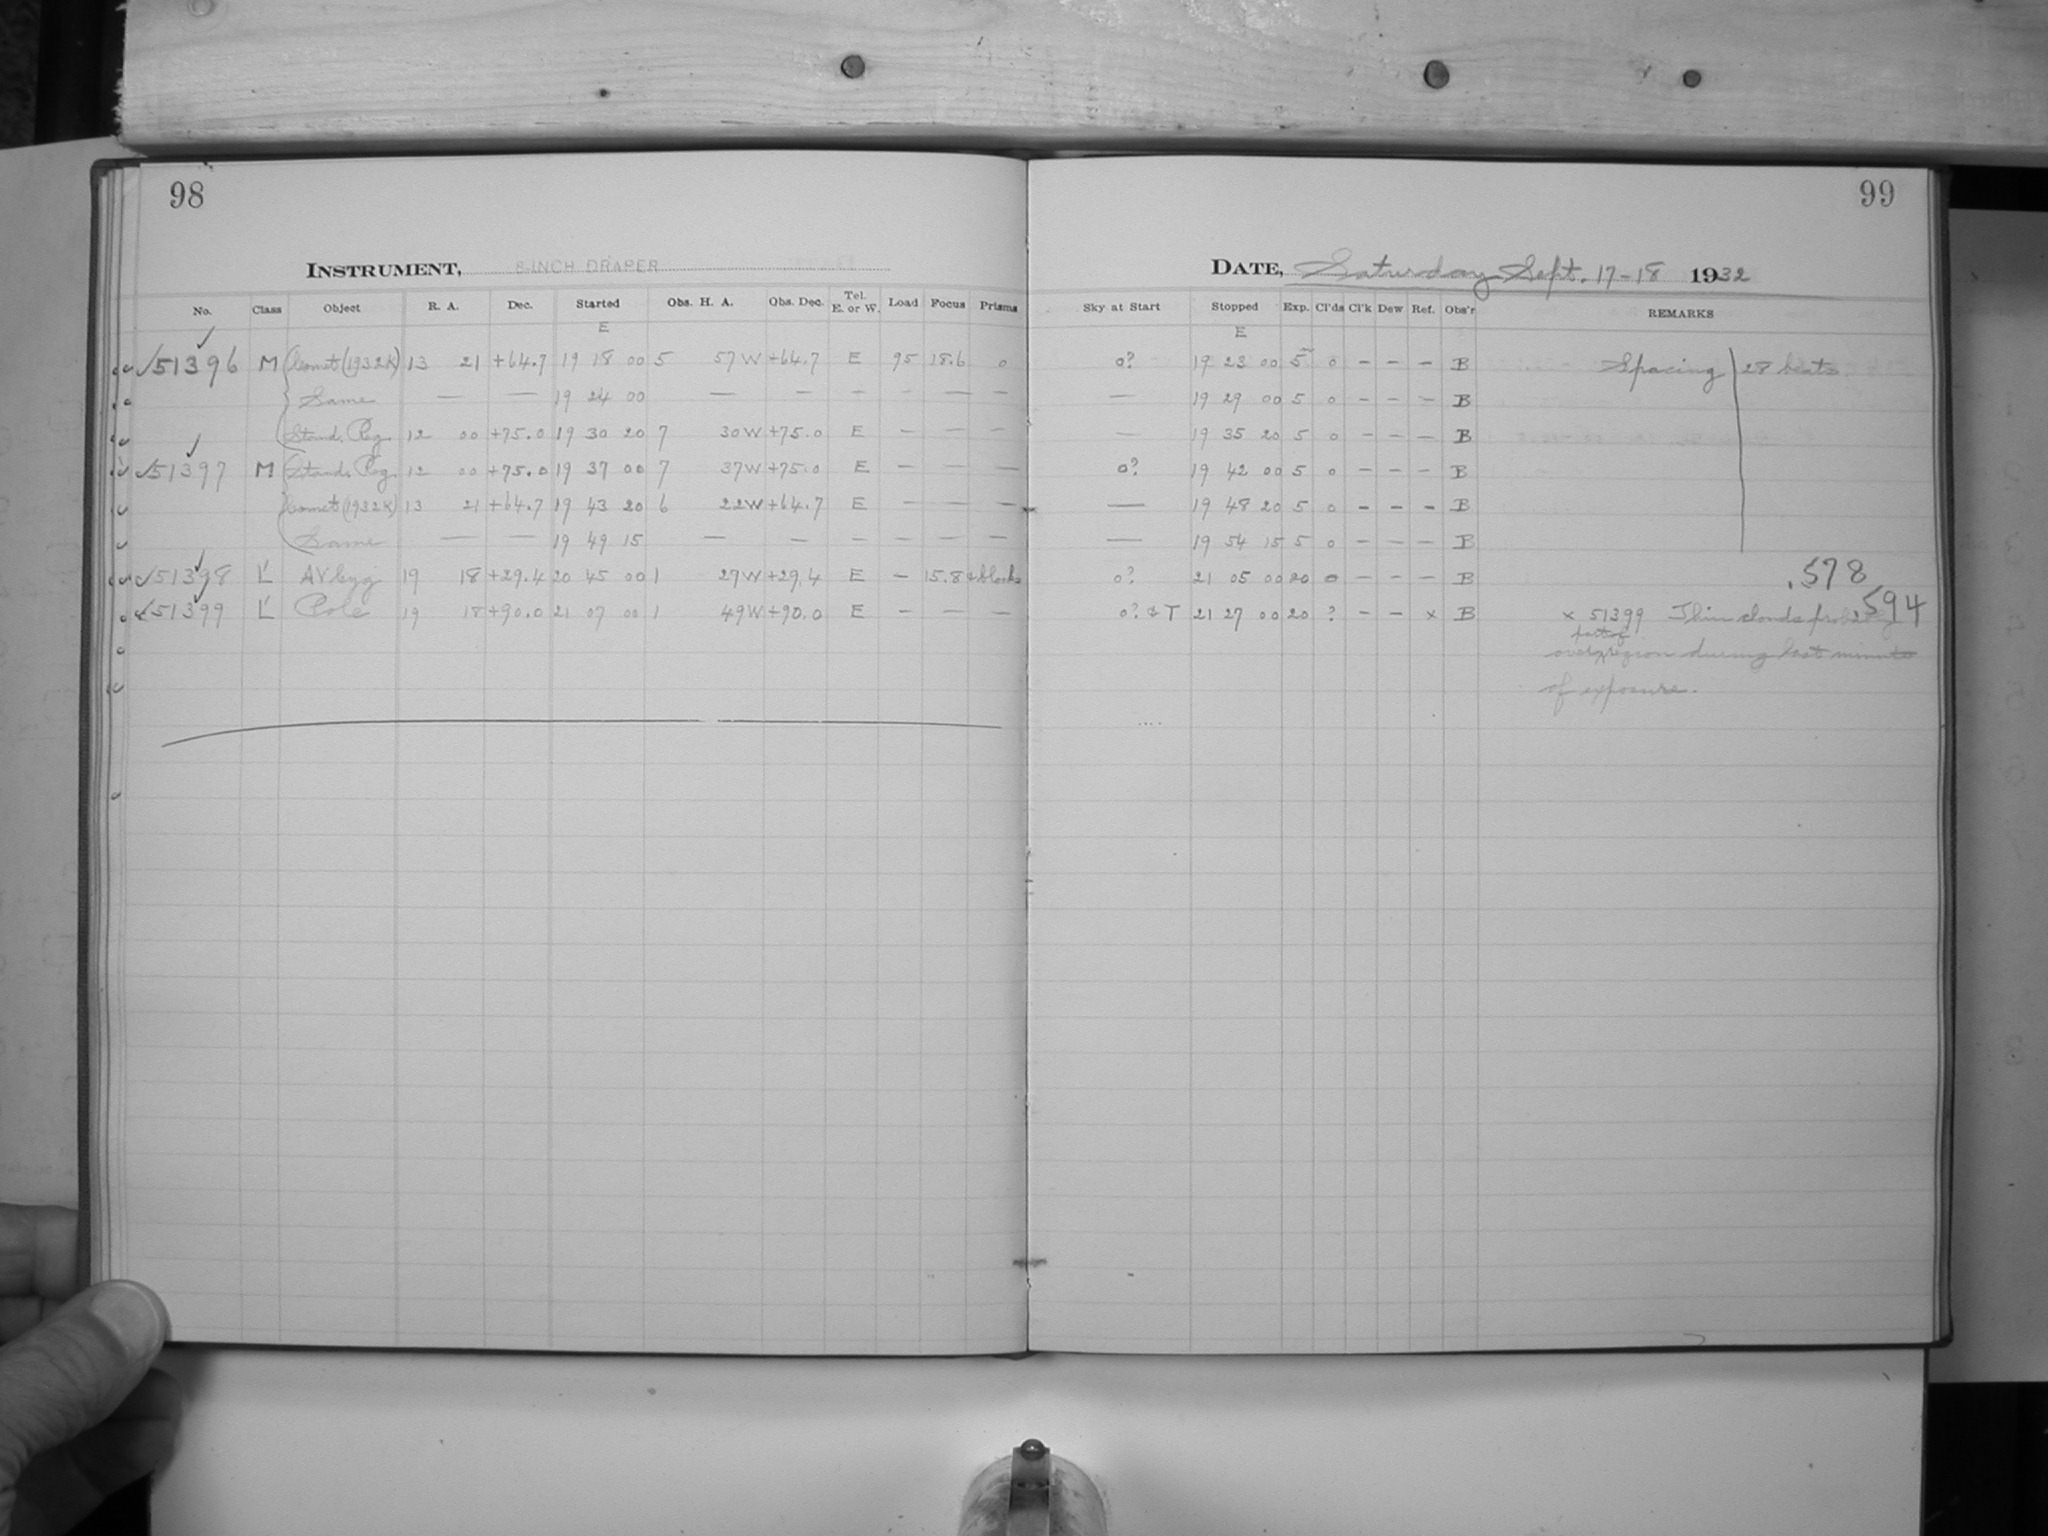 98
INSTRUMENT, 8-INCH DRAPER
No. Class Object R. A. Dec. Started Obs. H. A. Obs. Dec. Tel. E. or W. Load Focus Prisms
E
✓51396 M Comet (1932K) 13 21 +64.7 19 18 00 5 57W +64.7 E 95 18.6 0
Same — — 19 24 00 — — — - — —
Stand. Reg. 12 00 +75.0 19 30 20 7 30W +75.0 E — — —
✓51397 M Stand. Reg. 12 00 +75.0 19 37 00 7 37W +75.0 E — — —
Comet (1932K) 13 21 +64.7 19 43 20 6 22W +64.7 E — — —
Same — — 19 49 15 — — — — — —
✓51398 L' AV Cyg 19 18 +29.4 20 45 00 1 29W +29.4 E — 15.8 + blocks
✓51399 L' Pole 19 18 +90.0 21 07 00 1 49W +90.0 E — — —
99
DATE, Saturday Sept. 17-18 1932
Sky at Start Stopped Exp. Cl'ds Cl'k Dew Ref. Obs'r REMARKS
E
0? 19 23 00 5m 0 — — — B Spacing 28 beats
— 19 29 00 5 0 — — — B
— 19 35 20 5 0 — — — B
0? 19 42 00 5 0 — — — B
— 19 48 20 5 0 — — — B
— 19 54 15 5 0 — — — B
0? 21 05 00 20 0 — — — B .578
0? & T 21 27 00 20 ? — — x B x 51399 Thin clouds probably .594
part of
over region during last minute
of exposure.